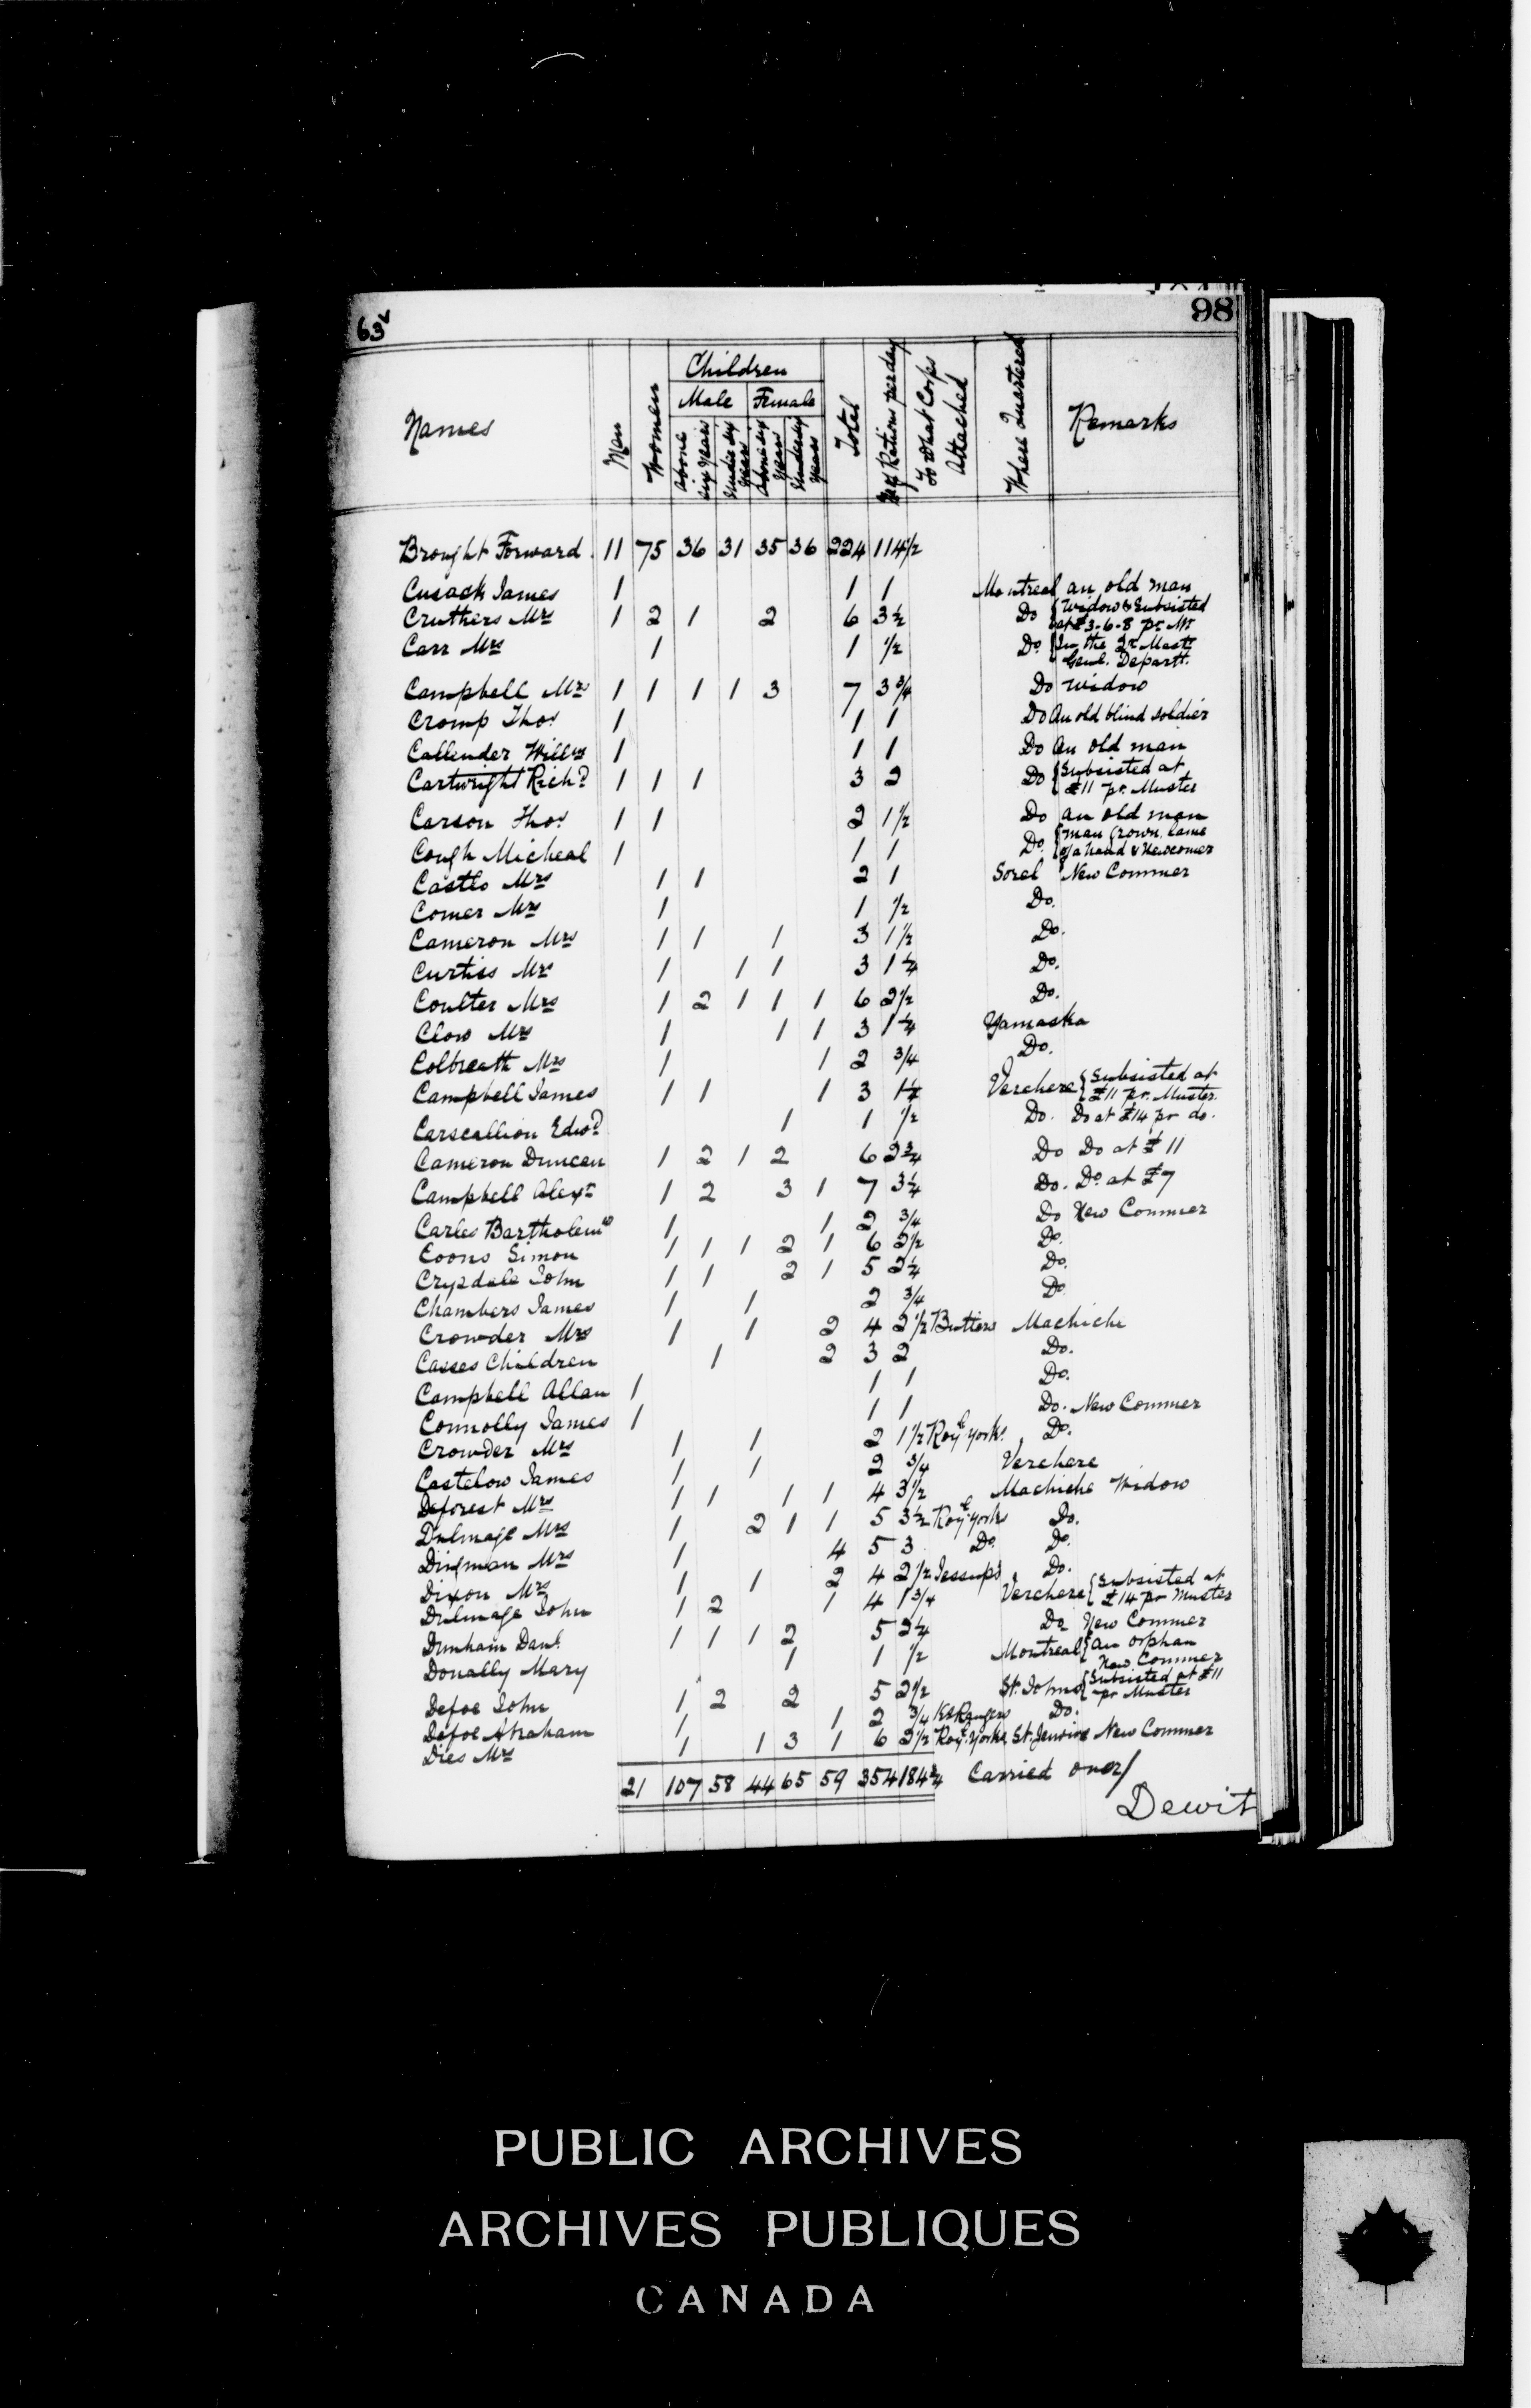 63v
98
Names
Men
Women
Children
Male
Female
above six years
Under six years
Above six years
Under six years
Total
No. of Rations per day
To What Corps Attached
Where Quartered
Remarks
Brought Forward 11 75 36 31 35 36 224 114½
Cusack James 1 1 1 Montreal an old man
Cruthers Mrs 1 2 1 2 6 3½ Do {Widow & Subsisted at £3-6-8 pr. Mr
Carr Mrs 1 1 ½ Do. {In the Qr. Mastr Genl. Departt.
Campbell Mrs 1 1 1 1 3 7 3¾ Do Widow
Cromp Thos 1 1 1 Do An old blind soldier
Callender Willm 1 1 1 Do An old man
Cartwright Richd 1 1 1 3 2 Do {Subsisted at £11 pr. Muster
Carson Thos 1 1 2 1½ Do an old man
Cough Micheal 1 1 1 Do. {man grown, lame of a hand & Newcomer
Castlo Mrs 1 1 2 1 Sorel New Commer
Comer Mrs 1 1 ½ Do.
Cameron Mrs 1 1 1 3 1½ Do.
Curtiss Mrs 1 1 1 3 1¼ Do.
Coulter Mrs 1 2 1 1 1 6 2½ Do.
Clow Mrs 1 1 1 3 1¼ Yamaska
Colbreath Mrs 1 1 2 ¾ Do.
Campbell James 1 1 1 3 1¼ Verchere {Subsisted at £11 pr. Muster.
Carscallion Edwd 1 1 ½ Do. Do at £14 pr do.
Cameron Duncan 1 2 1 2 6 2¾ Do Do at £11
Campbell Alexr 1 2 3 1 7 3¼ Do. Do. at £7
Carles Bartholemw 1 1 2 ¾ Do New Commer
Coons Simon 1 1 1 2 1 6 2½ Do.
Crysdale John 1 1 2 1 5 2¼ Do.
Chambers James 1 1 2 ¾ Do
Crowder Mrs 1 1 2 4 2½ Butlers Machiche
Casses Children 1 2 3 2 Do.
Campbell Allan 1 1 1 Do.
Connolly James 1 1 1 Do. New Commer
Crowder Mrs 1 1 2 1½ Royl Yorks. Do.
Castelow James 1 1 2 ¾ Verchere
Deforest Mrs 1 1 1 1 4 3½ Machiche Widow
Dulmage Mrs 1 2 1 1 5 3½ Royl Yorks Do.
Dingman Mrs 1 4 5 3 Do. Do.
Dixon Mrs 1 1 2 4 2½ Jessups Do.
Dulmage John 1 2 1 4 1¾ Verchere {Subsisted at £14 pr Muster
Dunham Danl. 1 1 1 2 5 2¼ Do New Commer
Donally Mary 1 1 ½ Montreal {an orphan New Commer
Defoe John 1 2 2 5 2½ St. Johns {Subsisted at £11 pr Muster
Defoe Abraham 1 1 2 ¾ Ks Rangers Do.
Dies Mrs 1 1 3 1 6 2½ Royl. Yorks New Commer
21 107 58 44 65 59 354 184¾ Carried over/
Dewit
PUBLIC ARCHIVES
ARCHIVES PUBLIQUES
CANADA